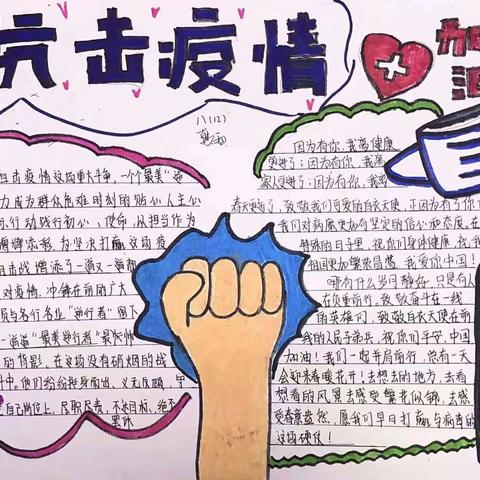 抗击疫情
加
八(12)
抗击疫情这场重大斗争,一个个最美"逆
力成为群众危难时刻的贴心人主心
际行动践行初心、使命,从担当作为
为坚决打赢这场疫
击战增添了一道又一道靓
对疫情,冲锋在前的广大
员与各行各业"逆行者"留下
一道道"最美逆行者"最
的背影,在这场没有硝烟的战
中,他们纷纷挺身而出、义无反顾,早
自己岗位上,尽职尽责,不达目标,绝不
罢休
因为有你,我萬健康
更进了;因为有你,我萬
家人更进了;因为有你,我萬
春天更近了,致敬我们可爱的白衣天使,正因为有了你们
我们对病魔更加有坚定的信心和态度,在
特殊的日子里,祝你们身体健康,祝我
祖国更加繁荣昌盛,我爱你中国!
哪有什么岁月静好,只是有人
在负重前行,致敬奋斗在一线
的英雄们,致敬白衣天使在前
的人民子弟兵,祝你们平安,中国
加油!我们一起并肩前行,总有一天
会迎来春暖花开!去想去的地方,去看
想看的风景去感受繁花似锦,去感
受春意盎然,愿我们早日打赢与病毒的
这场硬仗!